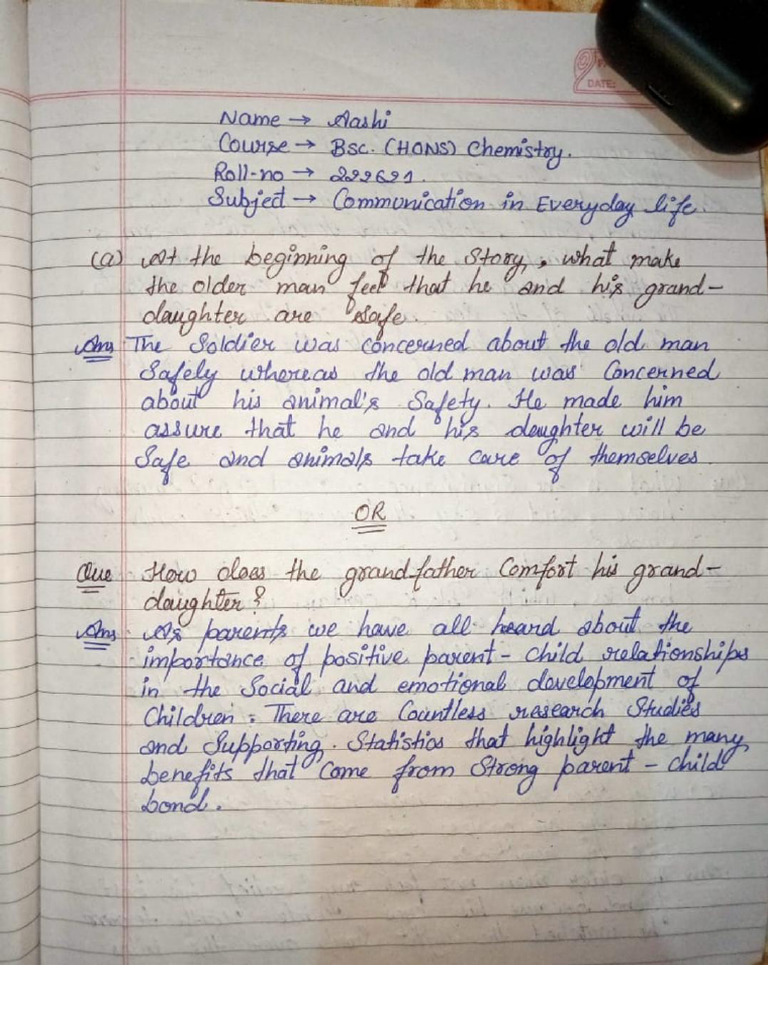 DATE:
Name → Aashi
Course → Bsc. (HONS) Chemistry.
Roll-no → 222621.
Subject → Communication in Everyday life.
(a) At the beginning of the story, what make
the older man feel that he and his grand-
daughter are safe.
Ans The Soldier was concerned about the old man
Safely whereas the old man was concerned
about his animal's Safety. He made him
assure that he and his daughter will be
Safe and animals take care of themselves
OR
Que How does the grandfather Comfort his grand-
daughter?
Ans As parents we have all heard about the
importance of positive parent-child relationships
in the Social and emotional development of
Children. There are Countless research Studies
and Supporting. Statistics that highlight the many
benefits that come from Strong parent-child
bond.